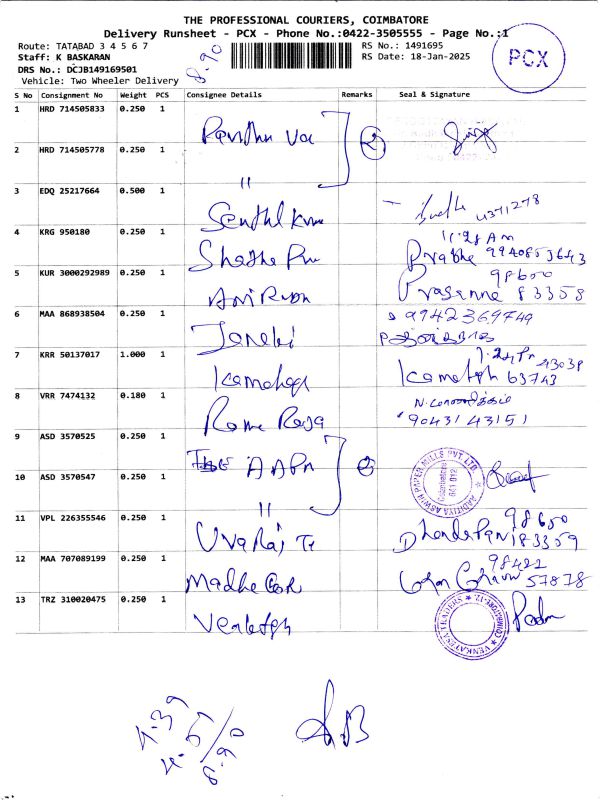 THE PROFESSIONAL COURIERS, COIMBATORE
Delivery Runsheet - PCX - Phone No.:0422-3505555 - Page No.:1
Route: TATABAD 3 4 5 6 7
RS No.: 1491695
Staff: K BASKARAN
RS Date: 18-Jan-2025
DRS No.: DCJB149169501
Vehicle: Two Wheeler Delivery
8.90
PCX
S No Consignment No Weight PCS Consignee Details Remarks Seal & Signature
1 HRD 714505833 0.250 1
2 HRD 714505778 0.250 1 "
3 EDQ 25217664 0.500 1 Senthil Kume
4 KRG 950180 0.250 1 11.28 Am
Prabhe 9940853643
5 KUR 3000292989 0.250 1 98650
Prasanne 83358
6 MAA 868938504 0.250 1 Janeki 9942369749
7 KRR 50137017 1.000 1 43038
Kamatgh 63743
8 VRR 7474132 0.180 1 Rame Raja 9043143151
9 ASD 3570525 0.250 1
10 ASD 3570547 0.250 1 "
AADITIYA ASWIN PAPER MILLS PVT LTD
Coimbatore
641 012
11 VPL 226355546 0.250 1 Uvaraj 98650
DhandaPani 83359
12 MAA 707089199 0.250 1 98422
57878
13 TRZ 310020475 0.250 1 Venketgh
VENKATESA TRADERS COIMBATORE-12
4.39
8.90